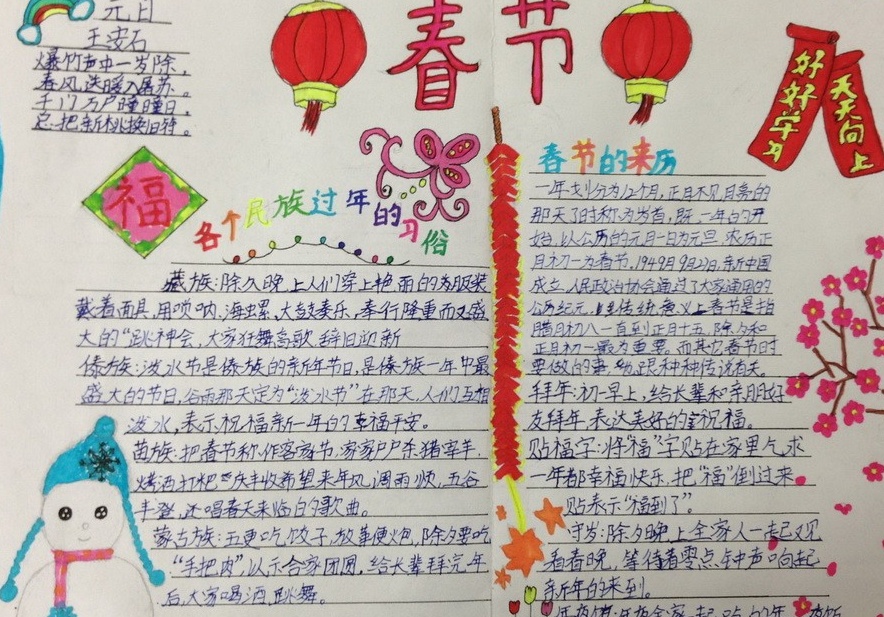 元日
王安石
爆竹声中一岁除,
春风送暖入屠苏。
千门万户曈曈日,
总把新桃换旧符。
春节
好好学习
天天向上
福
各个民族过年的习俗
藏族:除夕晚上人们穿上艳丽的服装
戴着面具,用唢呐,海螺,大鼓奏乐,奉行隆重而又盛
大的“跳神会,大家狂舞高歌,辞旧迎新
傣族:泼水节是傣族的新年节日,是傣族一年中最
盛大的节日,给那天定为“泼水节”在那天,人们互相
泼水,表示祝福新一年的幸福平安。
苗族:把春节称作客家节,家家户户杀猪宰羊,
烤酒打粑庆丰收希望来年风调雨顺,五谷
丰登,还唱春天来临的歌曲。
蒙古族:五更吃饺子,放鞭炮,除夕要吃
“手把肉”,以示合家团圆,给长辈拜完年
后,大家喝酒,跳舞。
春节的来历
一年划分为12个月,正月不见月亮的
那天子时称为岁首,既一年的开
始,以公历的元月一日为元旦,农历正
月初一为春节,1949月9月27日,新中国
成立,人民政治协会通过了大家通用的
公历纪元,传统意义上春节是指
腊月初八一直到正月十五,除夕和
正月初一最为重要。而其它春节时
要做的事物,跟种种传说有关。
拜年:初一早上,给长辈和亲朋好
友拜年,表达美好的祝福。
贴福字:将“福”字贴在家里乞求
一年都幸福快乐,把“福”倒过来
贴表示“福到了”。
守岁:除夕晚上全家人一起观
看春晚,等待着零点钟声响起
新年的来到。